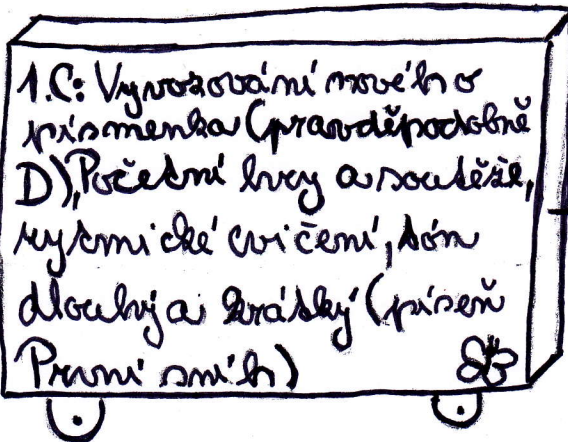 1.C: Vyvozování nového
písmenka (pravděpodobně
D), Početní hry a soutěže,
rytmické cvičení, tón
dlouhý a krátký (píseň
První sníh)